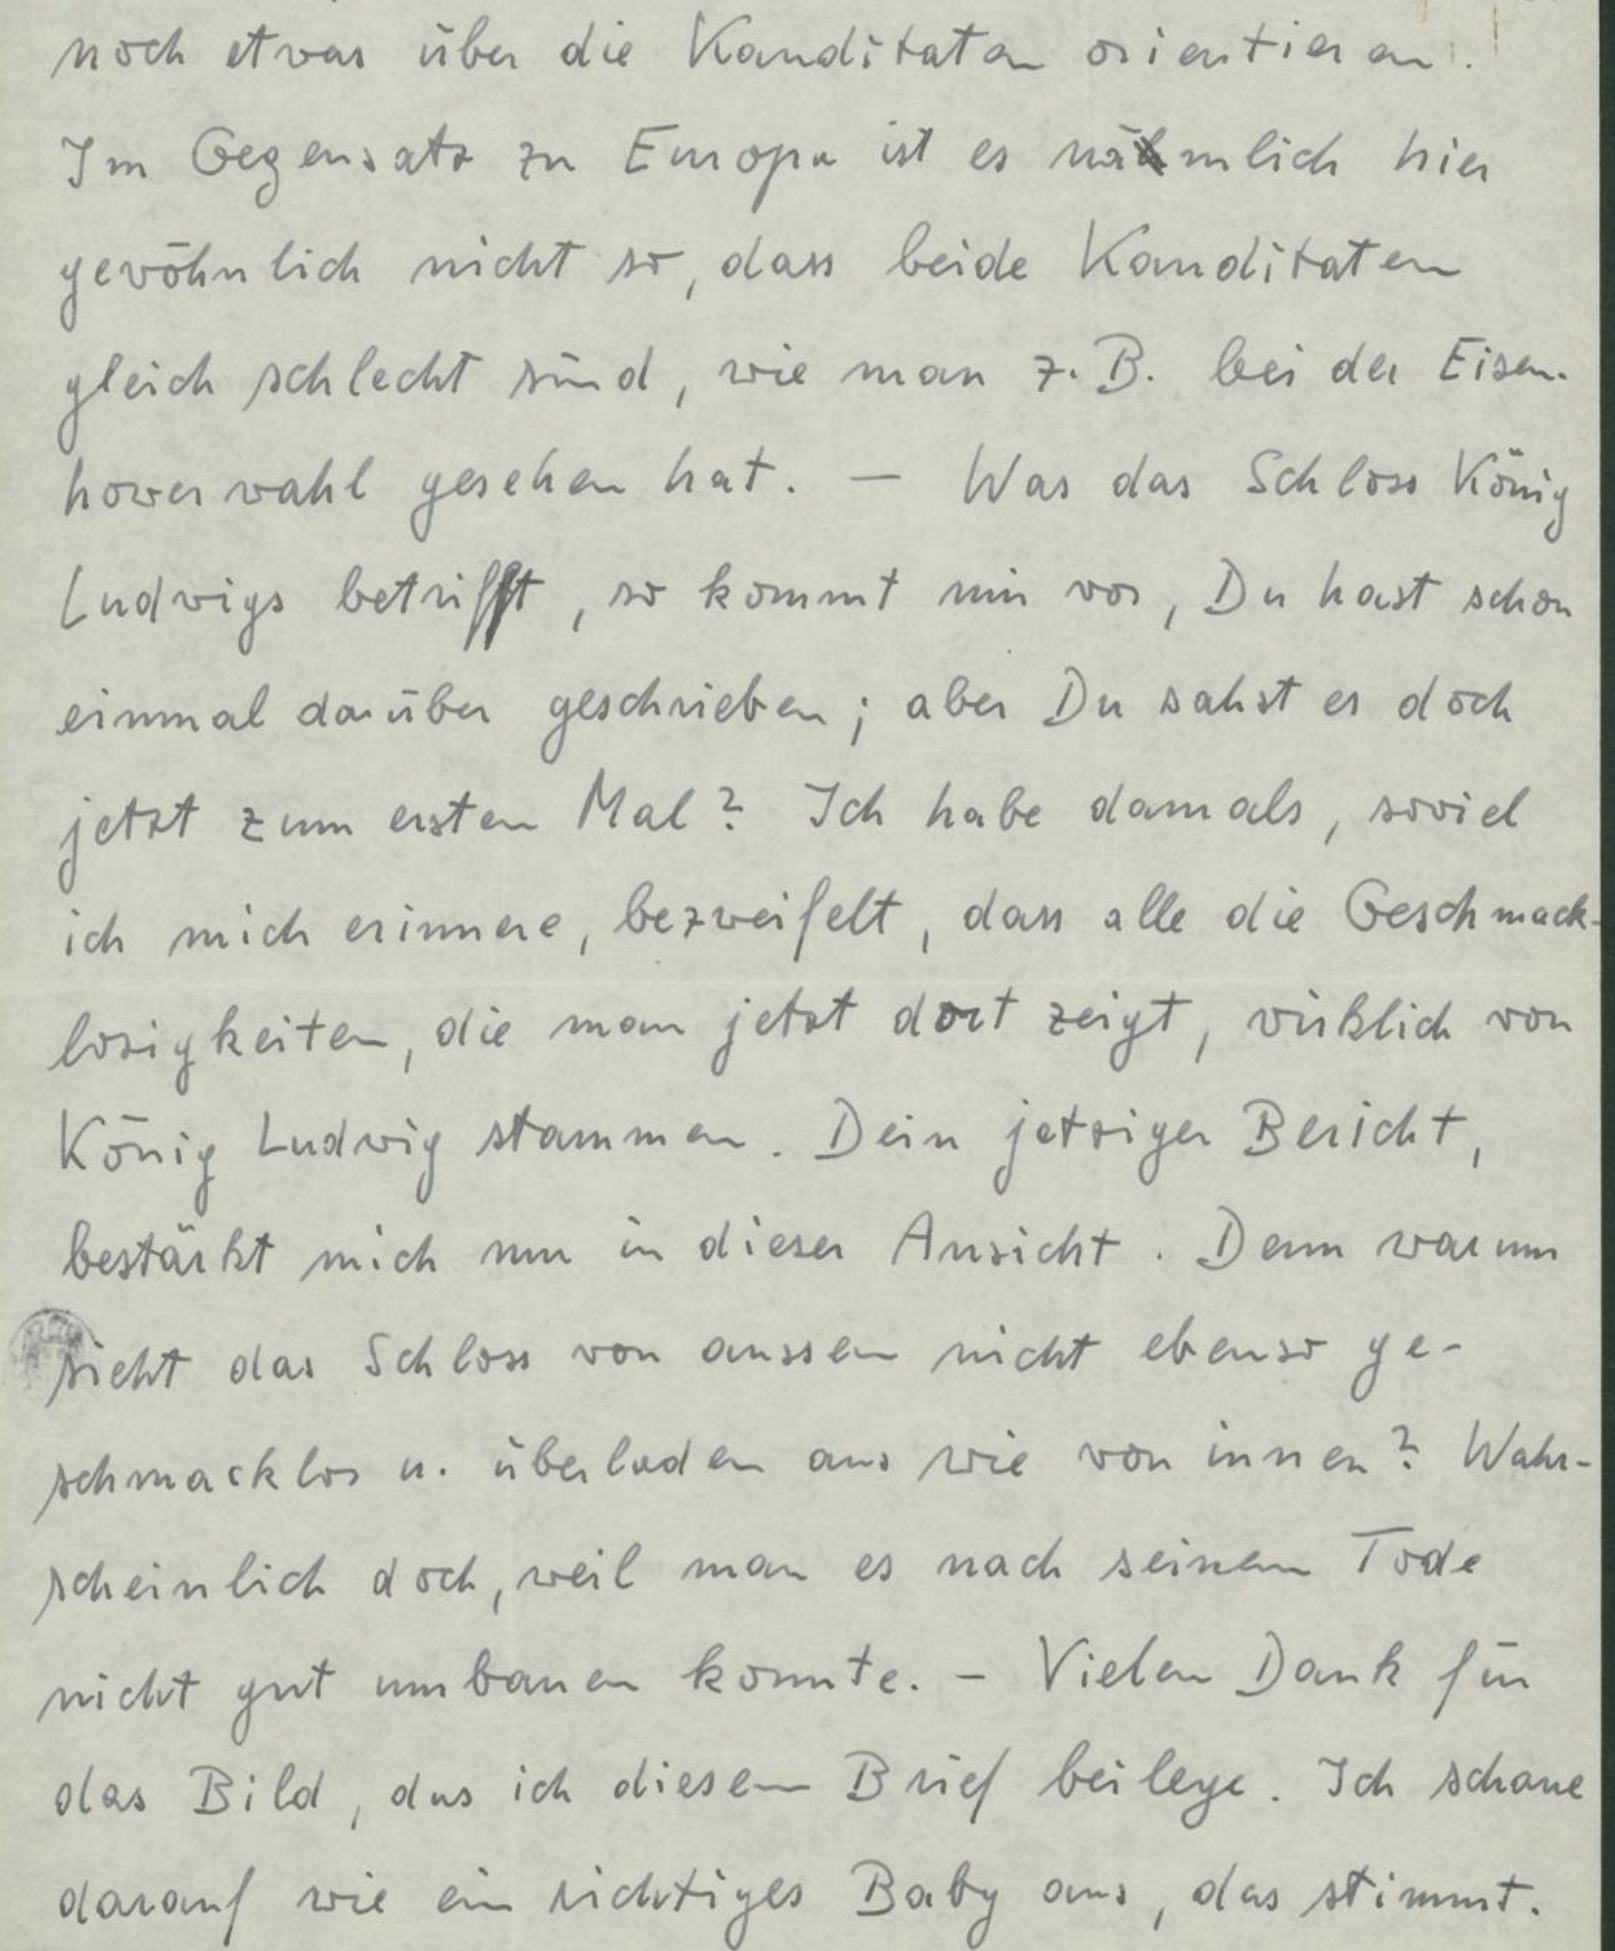 noch etwas über die Kanditaten orientieren.
Im Gegensatz zu Europa ist es nämlich hier
gewöhnlich nicht so, dass beide Kanditaten
gleich schlecht sind, wie man z. B. bei der Eisen-
howerwahl gesehen hat. — Was das Schloss König
Ludwigs betrifft, so kommt mir vor, Du hast schon
einmal darüber geschrieben; aber Du sahst es doch
jetzt zum ersten Mal? Ich habe damals, soviel
ich mich erinnere, bezweifelt, dass alle die Geschmack-
losigkeiten, die man jetzt dort zeigt, wirklich von
König Ludwig stammen. Dein jetziger Bericht,
bestärkt mich nur in dieser Ansicht. Denn warum
sieht das Schloss von aussen nicht ebenso ge-
schmacklos u. überladen aus wie von innen? Wahr-
scheinlich doch, weil man es nach seinem Tode
nicht gut umbauen konnte. — Vielen Dank für
das Bild, das ich diesem Brief beilege. Ich schaue
darauf wie ein richtiges Baby aus, das stimmt.